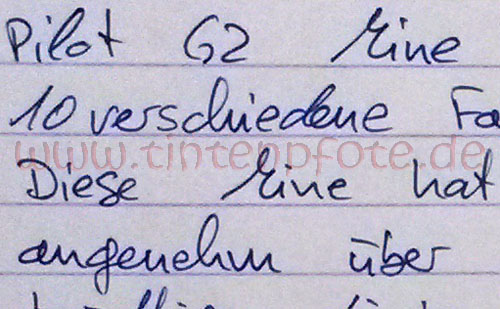 Pilot G2 Mine
10 verschiedene Fa
www.tintenpfote.de
Diese Mine hat
angenehm über